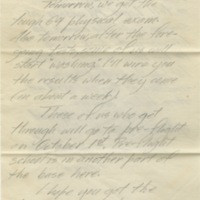 Tomorrow, we get the
tough 69 physical exam.
Also tomorrow, after the
going of us will
start "washing". I'll wire you
the results when they come
(in about a week).
Those of us who get
through will go to pre-flight
on October 1st. Pre-flight
school is in another part of
the base here.
I hope you got the